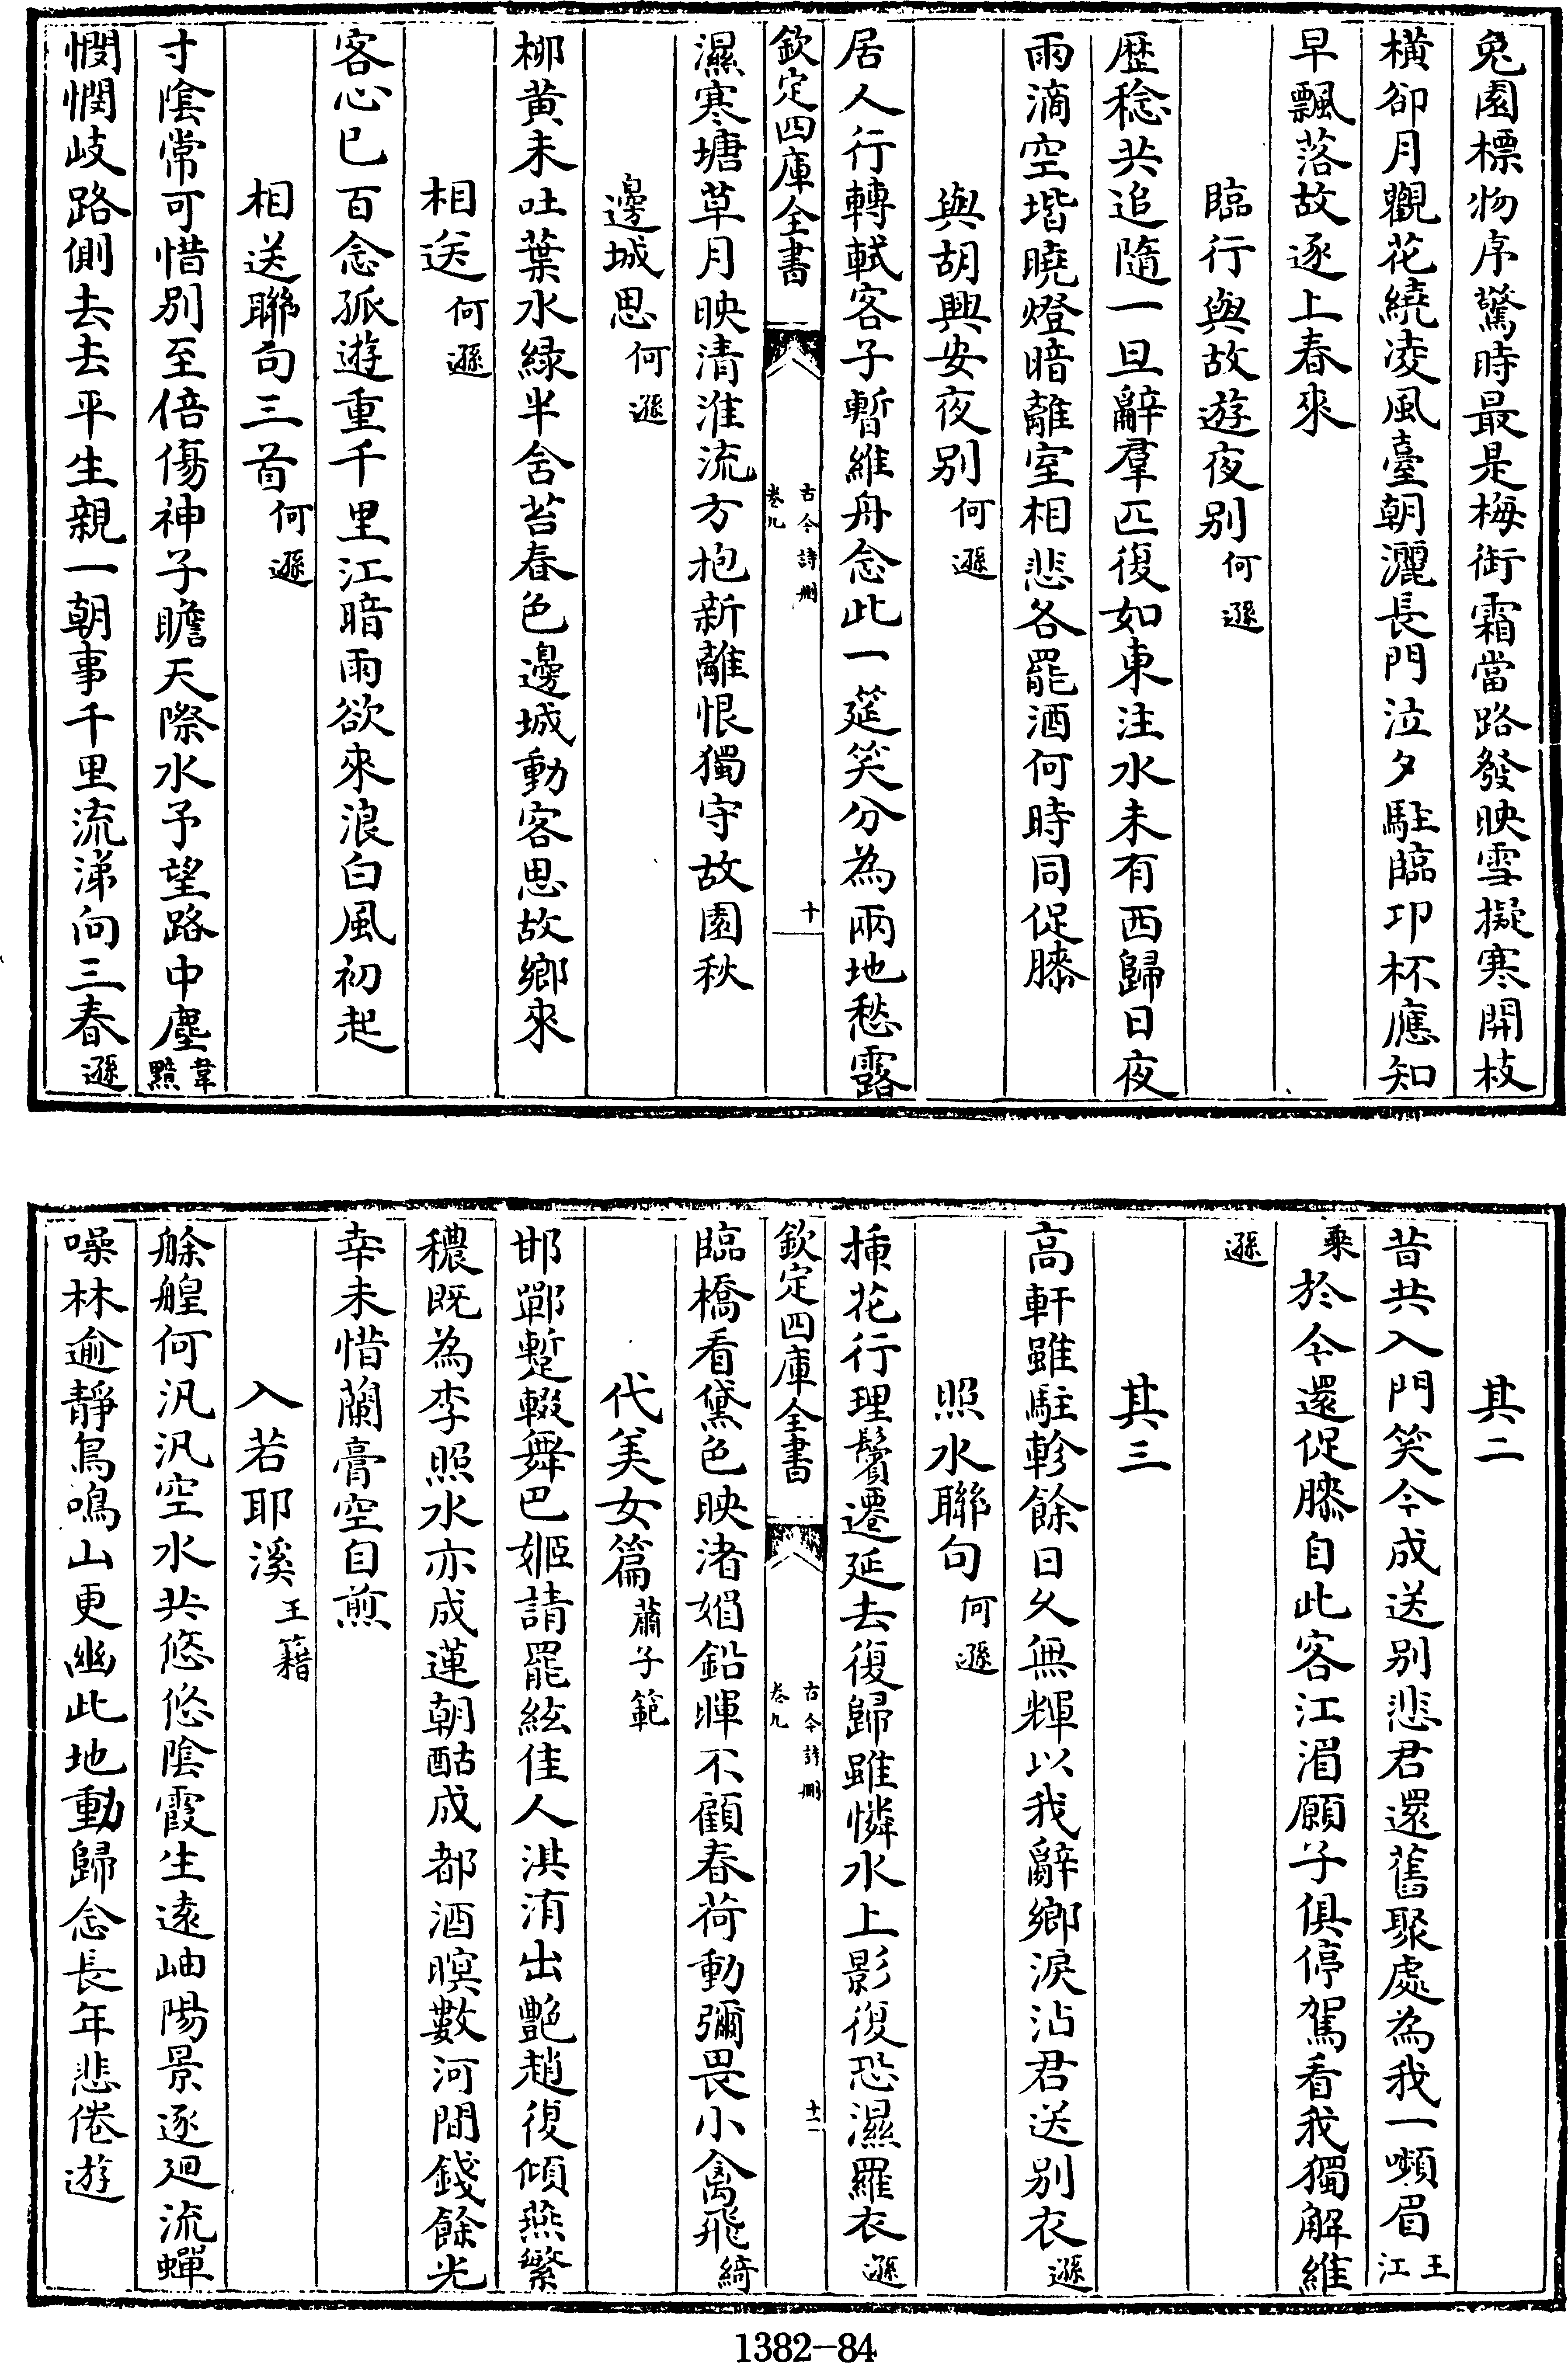 兔園標物序驚時最是梅街霜當路發映雪擬寒開枝
橫卻月觀花繞凌風臺朝灑長門泣夕駐臨邛杯應知
早飄落故逐上春來
臨行與故遊夜别何遜
歴稔共追隨一旦辭羣匹復如東注水未有西歸日夜
雨滴空堦曉燈暗離室相悲各罷酒何時同促膝
與胡興安夜别何遜
居人行轉軾客子暫維舟念此一筵笑分為兩地愁露
欽定四庫全書
古今詩刪
卷九
十
濕寒塘草月映清淮流方抱新離恨獨守故園秋
邊城思何遜
柳黄未吐葉水緑半含苔春色邊城動客思故鄉來
相送何遜
客心已百念孤遊重千里江暗雨欲來浪白風初起
相送聯句三首何遜
寸陰常可惜别至倍傷神子瞻天際水予望路中塵韋黯
憫憫岐路側去去平生親一朝事千里流涕向三春遜
其二
昔共入門笑今成送别悲君還舊聚處為我一嚬眉王江
乘於今還促膝自此客江湄願子俱停駕看我獨解維
遜
其三
高軒雖駐軫餘日久無輝以我辭鄉淚沾君送别衣遜
照水聯句何遜
插花行理鬢遷延去復歸雖憐水上影復恐濕羅衣遜
欽定四庫全書
古今詩刪
卷九
十一
臨橋看黛色映渚媚鉛暉不顧春荷動彌畏小禽飛綺
代美女篇蕭子範
邯鄲蹔輟舞巴姬請罷絃佳人淇洧出艷趙復傾燕繁
穠既為李照水亦成蓮朝酤成都酒暝數河間錢餘光
幸未惜蘭膏空自煎
入若耶溪王籍
艅艎何汎汎空水共悠悠陰霞生遠岫陽景逐廻流蟬
噪林逾靜鳥鳴山更幽此地動歸念長年悲倦遊
1382-84